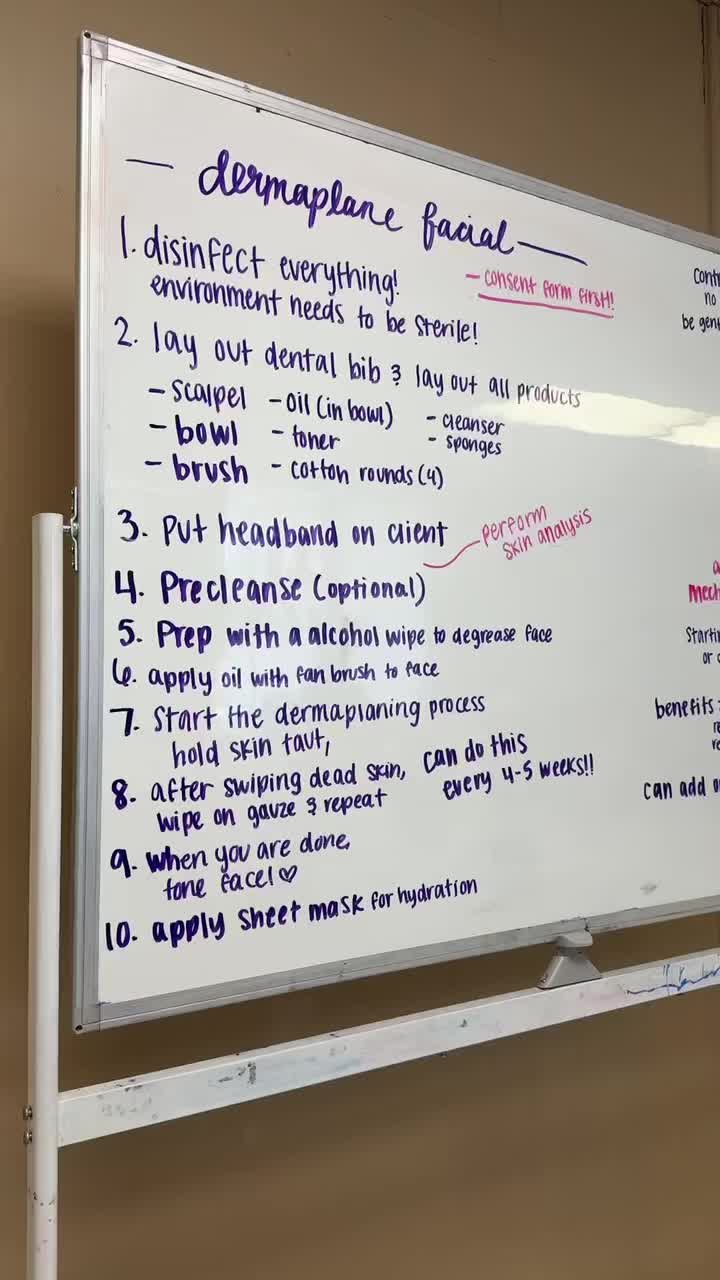 — dermaplane facial —
1. disinfect everything!
environment needs to be sterile!
- consent form first!
2. lay out dental bib & lay out all products
- scalpel - oil (in bowl) - cleanser
- bowl - toner - sponges
- brush - cotton rounds (4)
3. Put headband on client
perform
skin analysis
4. Precleanse (optional)
5. Prep with a alcohol wipe to degrease face
6. apply oil with fan brush to face
7. Start the dermaplaning process
hold skin taut,
8. after swiping dead skin,
wipe on gauze & repeat
can do this
every 4-5 weeks!!
9. when you are done,
tone face! ♡
10. apply sheet mask for hydration
no
or
benefits
can add